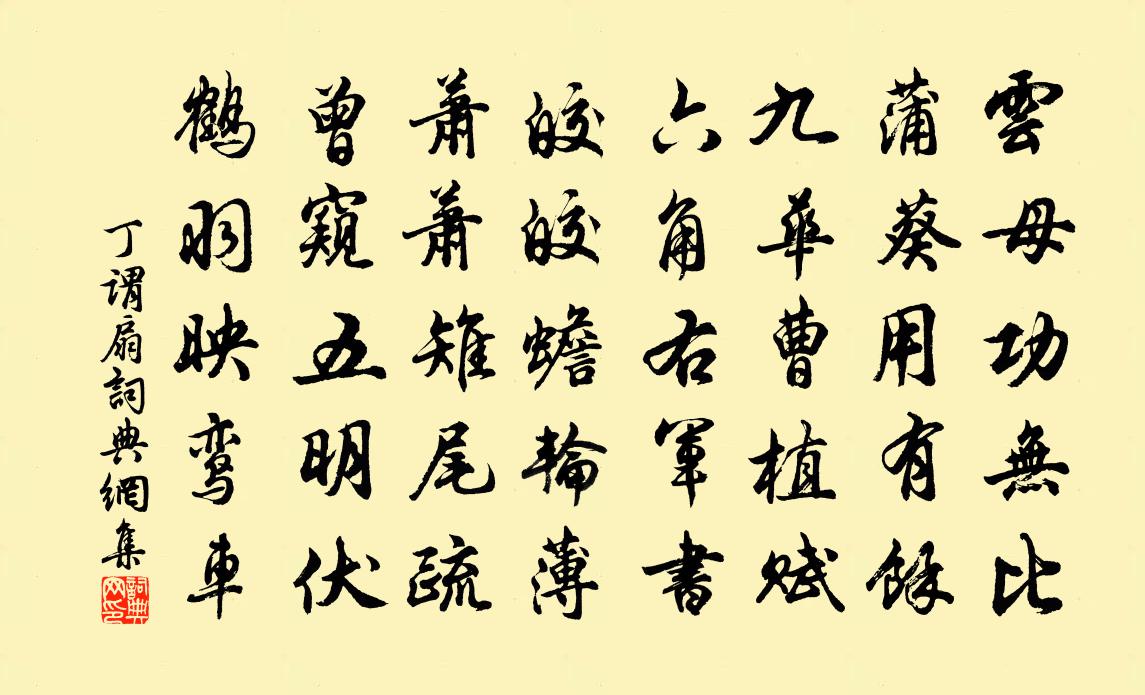 雲母功無比
蒲葵用有餘
九華曹植賦
六角右軍書
皎皎蟾輪薄
蕭蕭雉尾疏
曾窺五明伏
鶴羽映鸾車
丁謂扇詞典網集
詞典网印